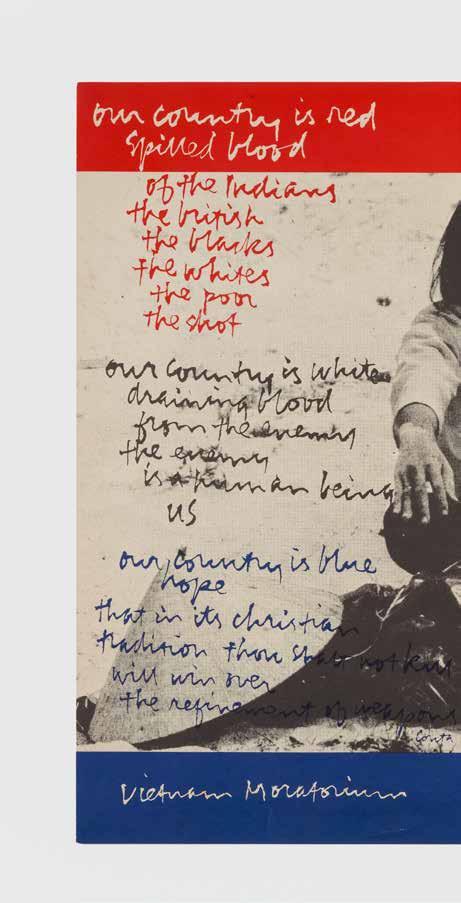 our country is red
spilled blood
of the Indians
the british
the blacks
the whites
the poor
the shot
our country is white
draining blood
from the enemy
the enemy
is a human being
US
our country is blue
hope
that in its christian
tradition thou shalt not kill
will win over
the refinement of weapons
Corita
Vietnam Moratorium